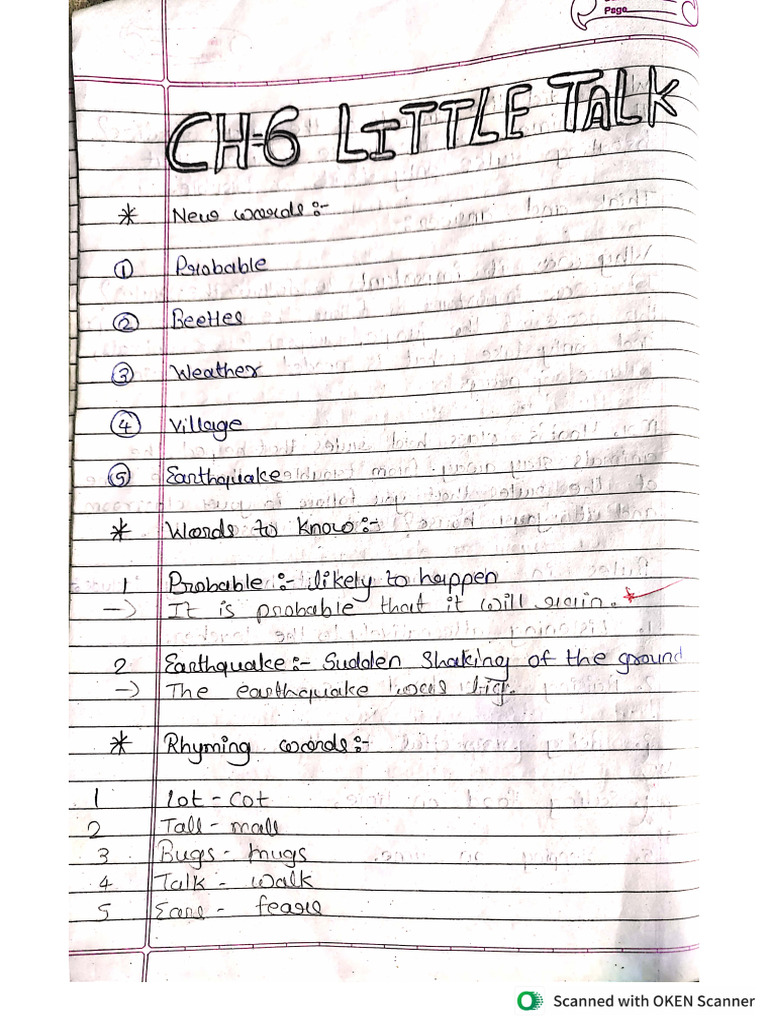 Page
CH-6 LITTLE TALK
* New words:-
① Probable
② Beetles
③ Weather
④ Village
⑤ Earthquake
* Words to know:-
1 Probable:- likely to happen
→ It is probable that it will rain.
2 Earthquake:- Sudden Shaking of the ground
→ The earthquake was big.
* Rhyming words:-
1 lot - cot
2 Tall - mall
3 Bugs - mugs
4 Talk - walk
5 Ears - fears
Scanned with OKEN Scanner